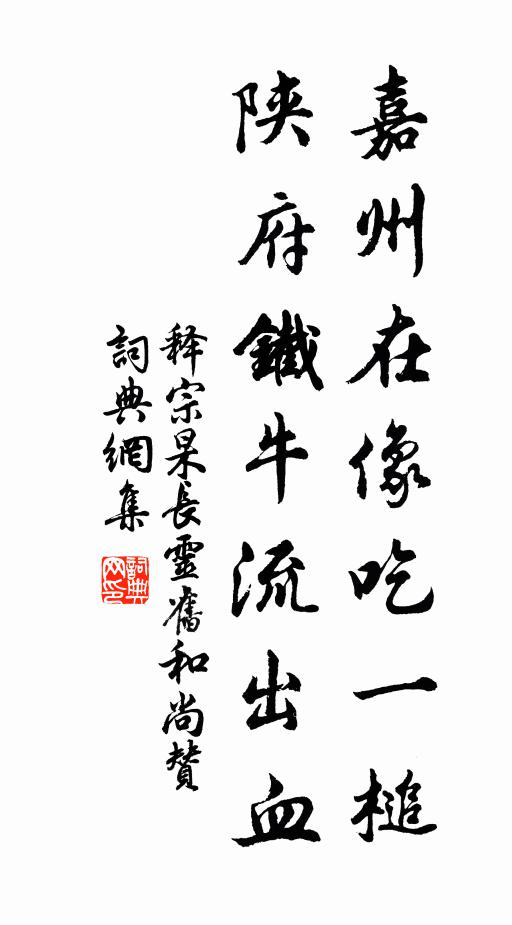 嘉州在像吃一槌
陕府鐵牛流出血
释宗杲長靈舊和尚贊
詞典網集
詞典网印